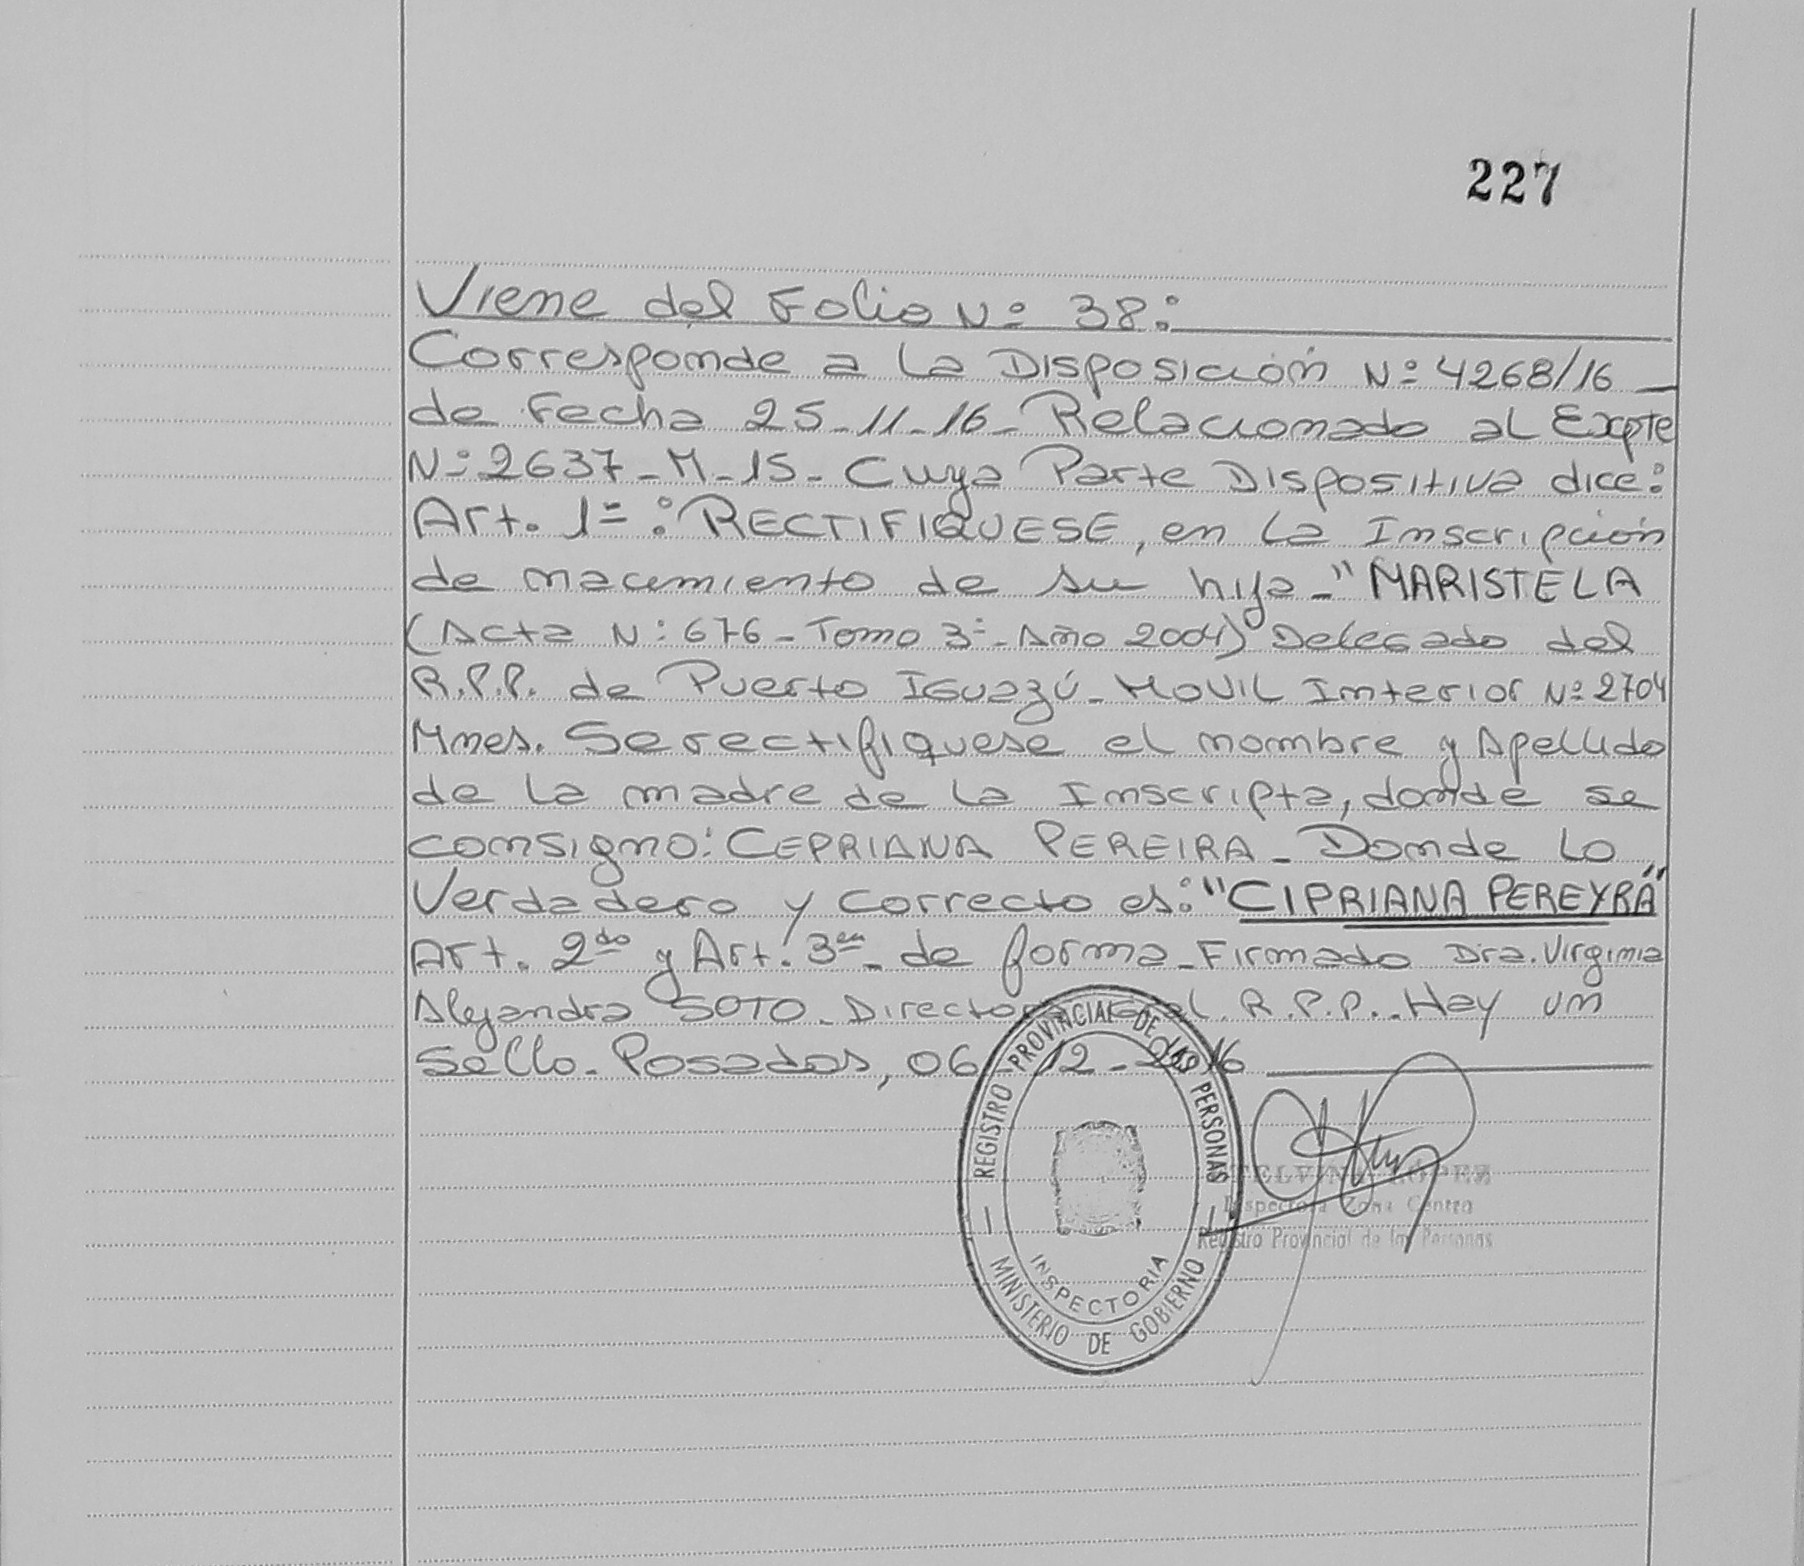 227
Viene del Folio Nº 38:
Corresponde a la Disposición Nº 4268/16
de Fecha 25-11-16- Relacionado al Expte
Nº 2637-M-15- Cuya Parte Dispositiva dice:
Art. 1º: RECTIFIQUESE, en la Inscripción
de nacimiento de su hija - "MARISTELA
(Acta Nº 676 - Tomo 3º - Año 2004) Delegado del
R.P.P. de Puerto Iguazú - Movil Interior Nº 2704
Mnes. Se rectifiquese el nombre y Apellido
de la madre de la Inscripta, donde se
consigno: CEPRIANA PEREIRA - Donde lo
Verdadero y correcto es: "CIPRIANA PEREYRA"
Art. 2do y Art. 3er - de forma - Firmado Dra. Virginia
Alejandra SOTO - Directora Gral R.P.P.. Hay un
Sello - Posadas, 06-12-2016
REGISTRO PROVINCIAL DE LAS PERSONAS
INSPECTORIA
MINISTERIO DE GOBIERNO
TELVINA LOPEZ
Inspectora Zona Centro
Registro Provincial de las Personas